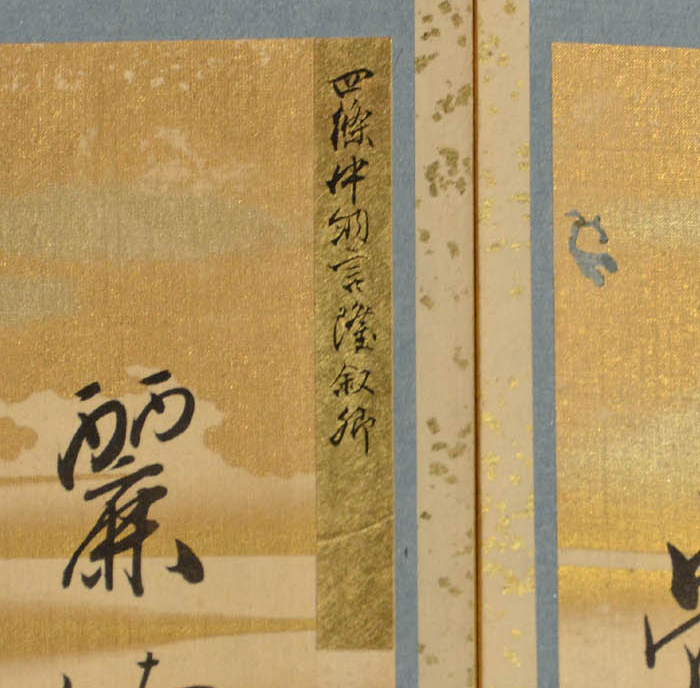 四條中納言隆叙卿
麗